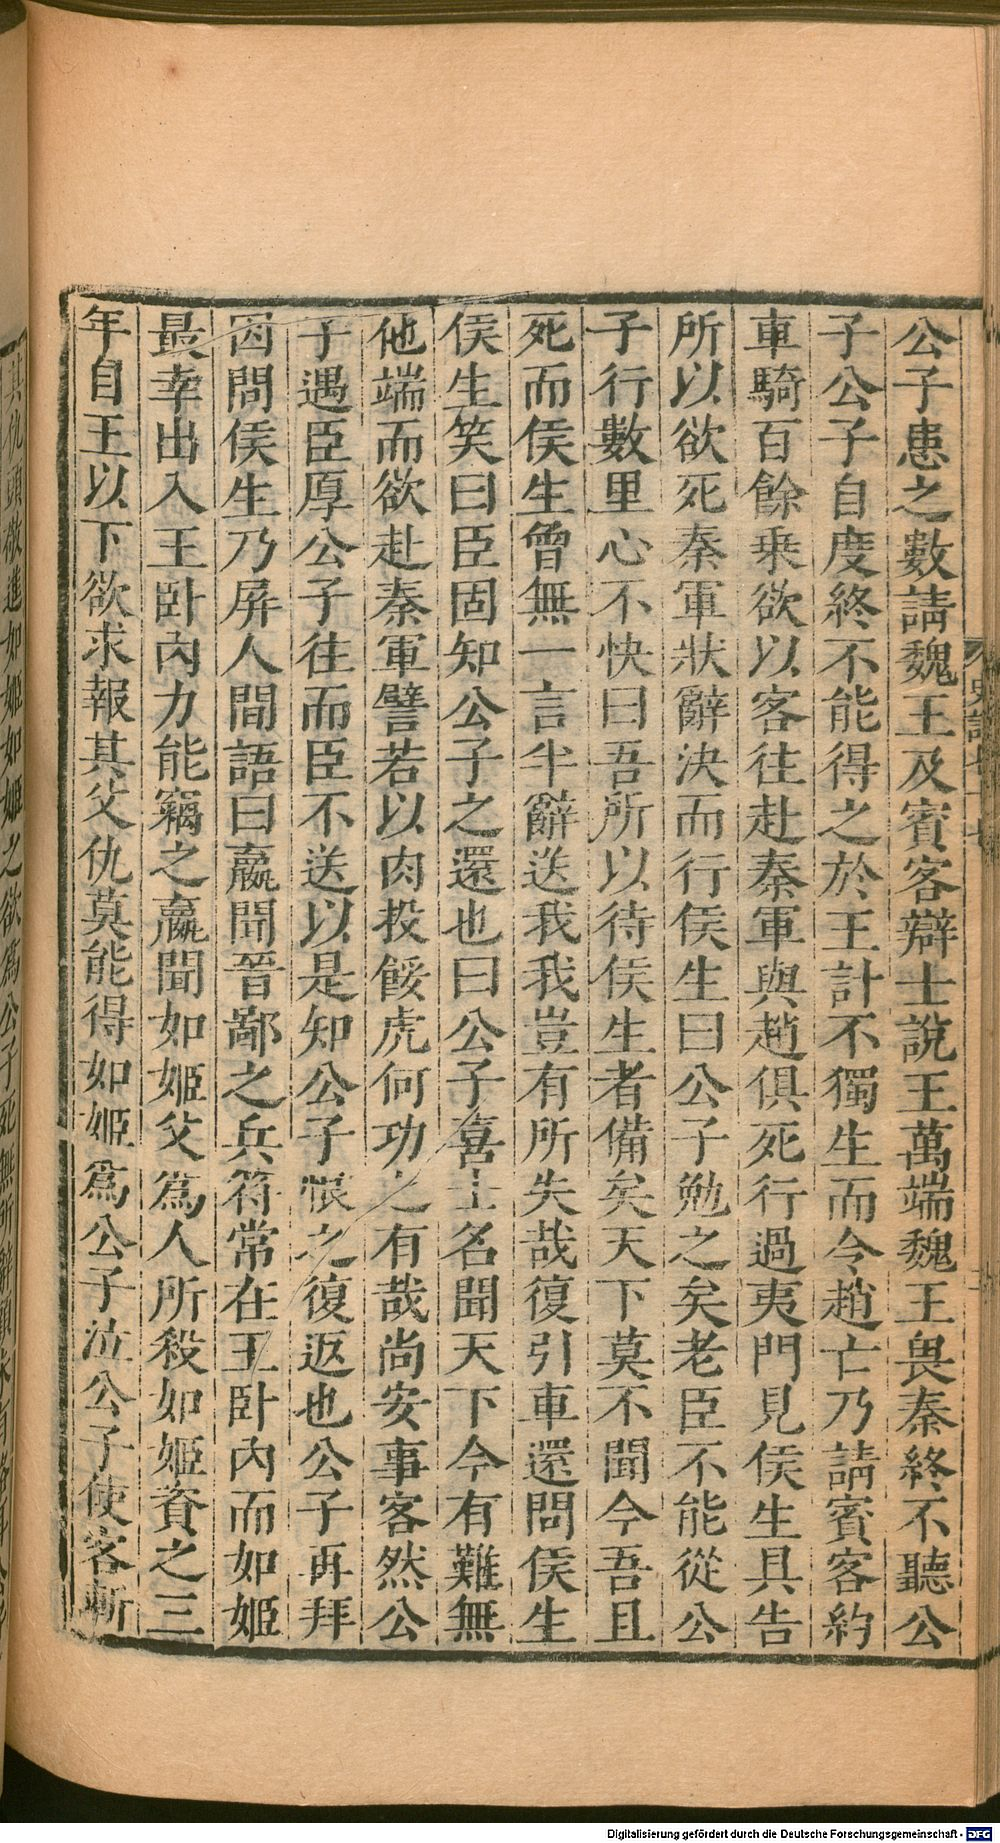 公子患之數請魏王及賓客辯士說王萬端魏王畏秦終不聽公
子公子自度終不能得之於王計不獨生而令趙亡乃請賓客約
車騎百餘乘欲以客往赴秦軍與趙俱死行過夷門見侯生具告
所以欲死秦軍狀辭決而行侯生曰公子勉之矣老臣不能從公
子行數里心不快曰吾所以待侯生者備矣天下莫不聞今吾且
死而侯生曾無一言半辭送我我豈有所失哉復引車還問侯生
侯生笑曰臣固知公子之還也曰公子喜士名聞天下今有難無
他端而欲赴秦軍譬若以肉投餒虎何功之有哉尚安事客然公
子遇臣厚公子往而臣不送以是知公子恨之復返也公子再拜
因問侯生乃屏人間語曰嬴聞晉鄙之兵符常在王臥內而如姬
最幸出入王臥內力能竊之嬴聞如姬父爲人所殺如姬資之三
年自王以下欲求報其父仇莫能得如姬爲公子泣公子使客斬
其仇頭敬進如姬如姬之欲爲公子死無所辭
Digitalisierung gefördert durch die Deutsche Forschungsgemeinschaft - DFG